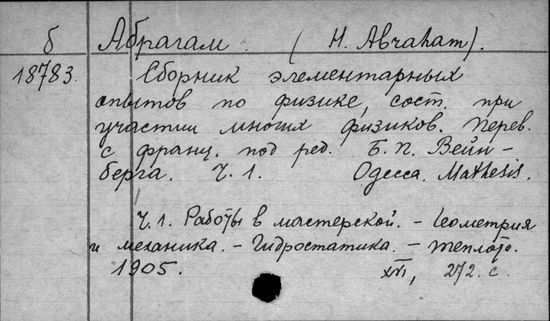 б Абрагам. (H. Abraham).
18783. Сборник элементарных
опытов по физике, сост. при
участии многих физиков. Перев.
с франц. под ред. Б. П. Вейн-
берга. Ч. 1. Одесса. Mathesis.
Ч. 1. Работы в мастерской. - Геометрия
и механика. - Гидростатика. - Теплота.
1905. XVI, 272 с.